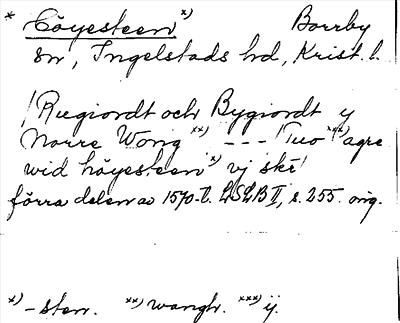 * Cöyesteen x) Borrby
sn, Ingelstads hd, Krist. l.
/Rugiordt och Bygiordt y
Norre Wong xx) --- /Tuo xxx) agre
wid höyesteen x) vj skr/
förra delen av 1570-t. LSLB II, s. 255. orig.
x) -sten. xx) wangh. xxx) ij.